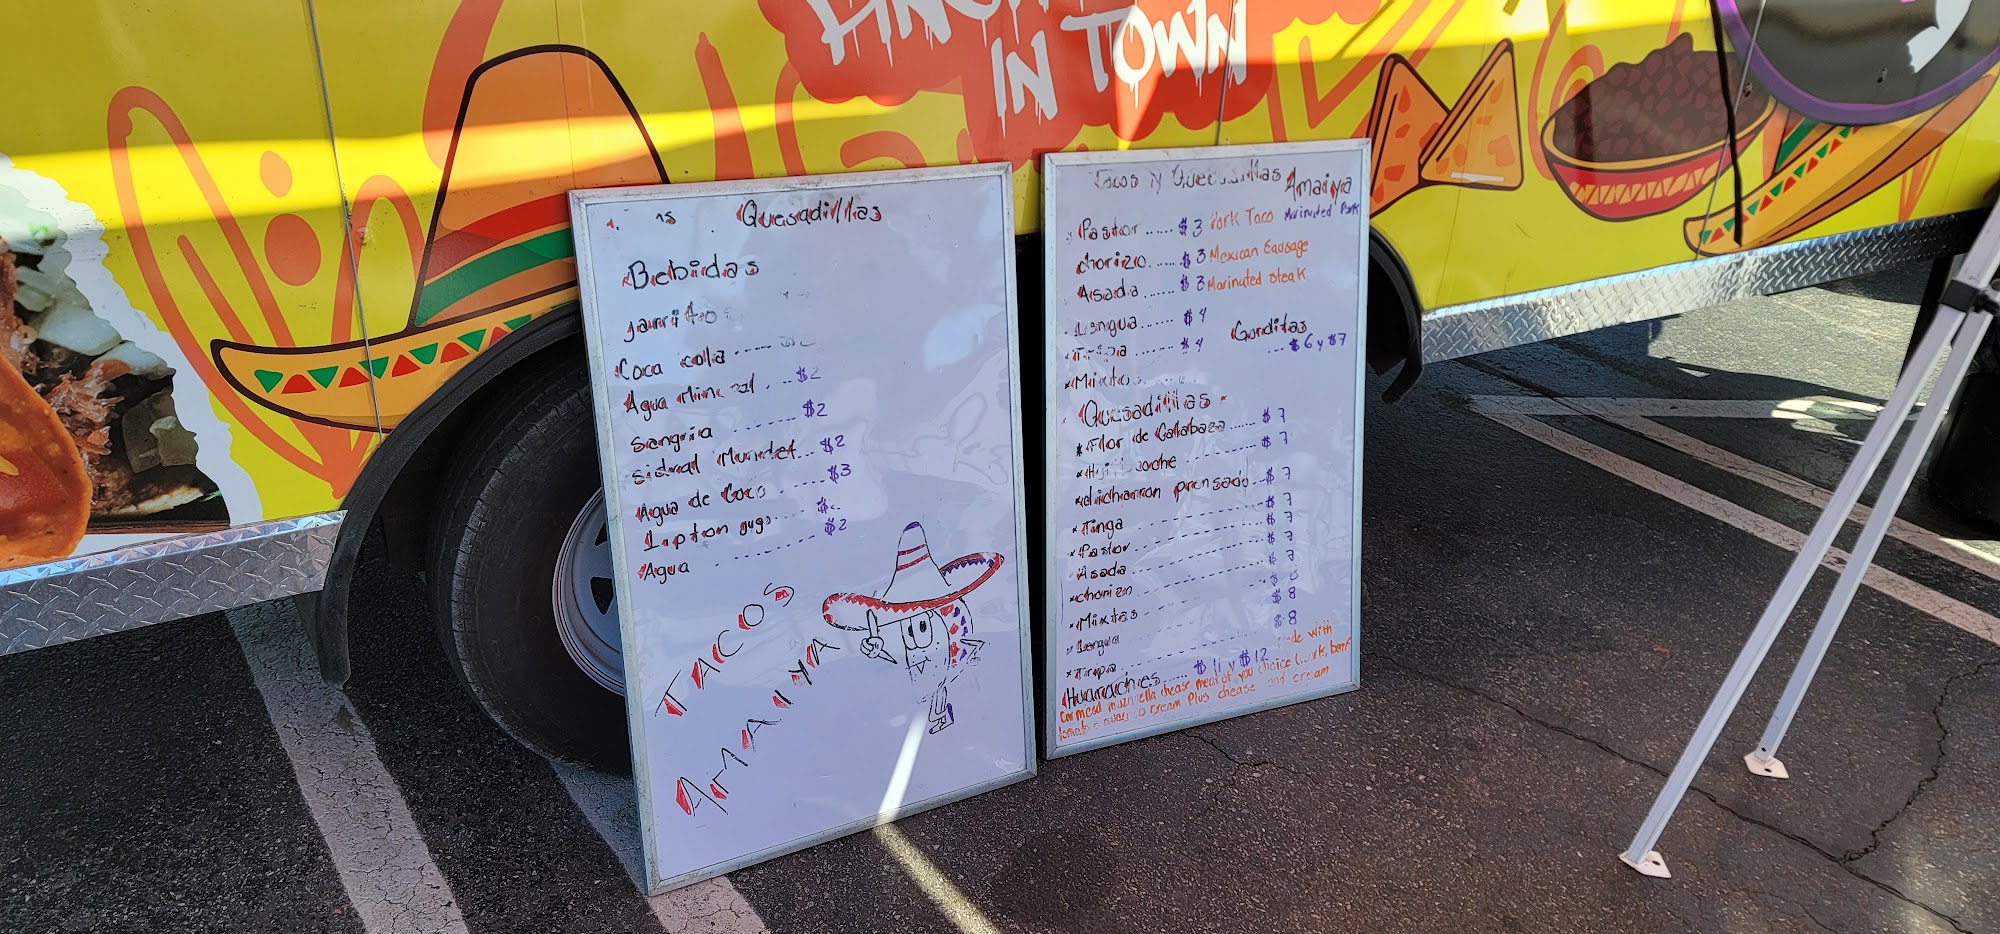 IN TOWN
Quesadillas
Bebidas
jarritos
Coca cola ------
Agua Mineral . --- $2
Sangria ------- $2
sidral Mundet... $2
Agua de Coco ------ $3
Lipton jugo ------
Agua -------- $2
TACOS
AMAIYA
Tacos y Quesadillas Amaiya
Pastor ...... $3 Pork Taco Marinated Pork
chorizo ...... $3 Mexican Sausage
Asada ...... $3 Marinated steak
Lengua ....... $4
Tripa ........ $4
Gorditas
... $6 y $7
*Mixtos
Quesadillas
*Flor de Calabaza ....... $7
$7
chicharron prensado... $7
*Tinga $7
*Pastor $7
*Asada $7
*chorizo $7
*Mixtas
*Lengua $8
*Tripa $8
Huaraches...... $11 y $12 with
meat of you choice beef
cream Plus chease and cream